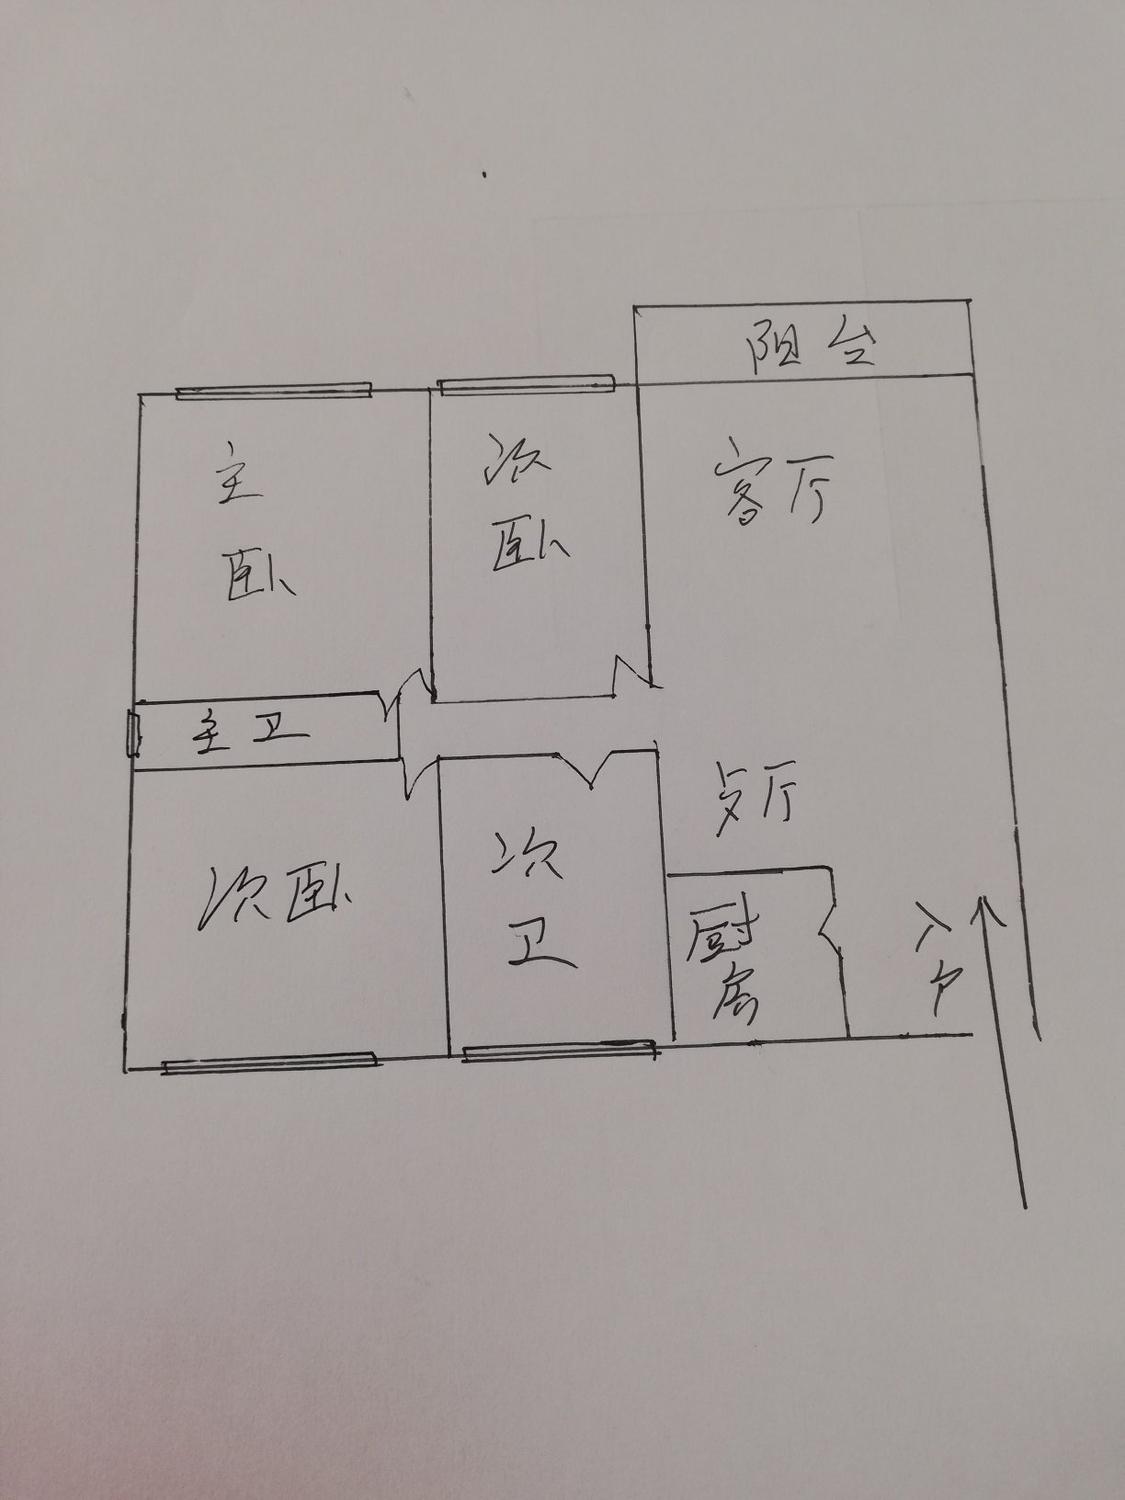 阳台
主卧
次卧
客厅
主卫
歺厅
次卧
次卫
厨房
入户